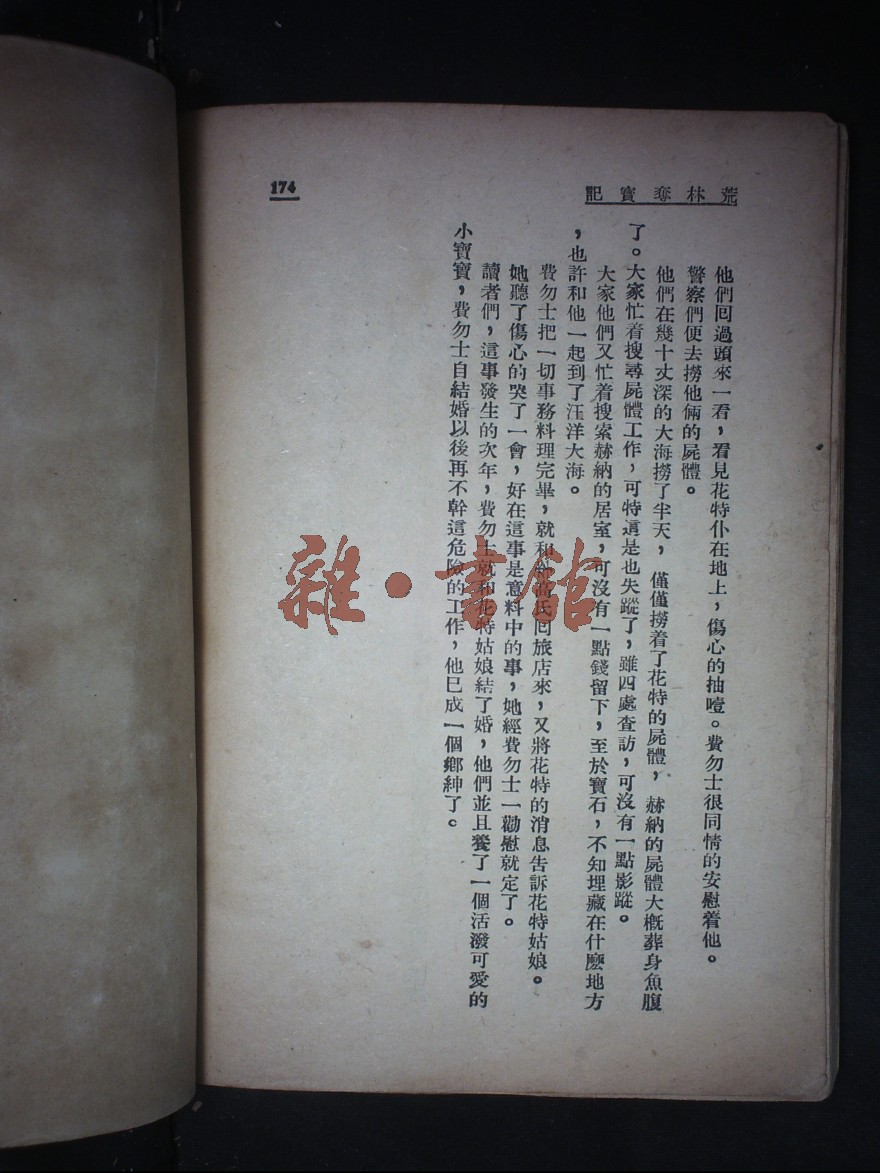 荒林奪寶記
174
他們囘過頭來一看，看見花特仆在地上，傷心的抽噎。費勿士很同情的安慰着他。
警察們便去撈他倆的屍體。
他們在幾十丈深的大海撈了半天，僅僅撈着了花特的屍體，赫納的屍體大槪葬身魚腹
了。大家忙着搜尋屍體工作，可特這是也失蹤了，雖四處查訪，可沒有一點影蹤。
大家他們又忙着搜索赫納的居室，可沒有一點錢留下，至於寶石，不知埋藏在什麼地方
，也許和他一起到了汪洋大海。
費勿士把一切事務料理完畢，就和高氏囘旅店來，又將花特的消息告訴花特姑娘。
她聽了傷心的哭了一會，好在這事是意料中的事，她經費勿士一勸慰就定了。
讀者們，這事發生的次年，費勿士就和花特姑娘結了婚，他們並且養了一個活潑可愛的
小寶寶，費勿士自結婚以後再不幹這危險的工作，他巳成一個鄉紳了。
雜·書館